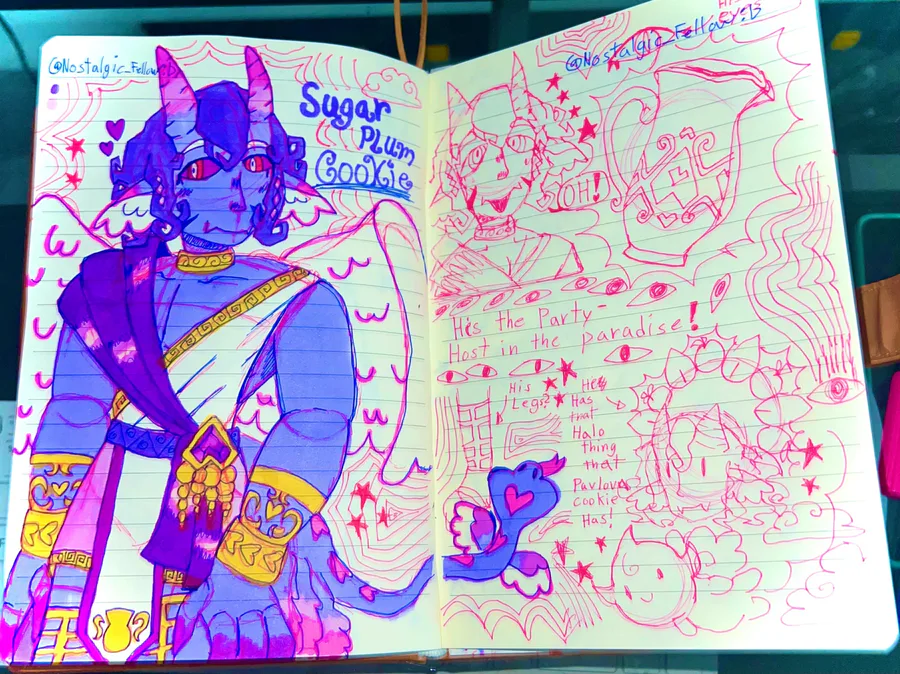 @Nostalgic_Fellow:B
Sugar
Plum
Cookie
@Nostalgic_Fellow:B
OH!
He's the Party-
Host in the paradise!
His
Legs?
He
Has
that
Halo
thing
that
Pavlova
cookie
Has!